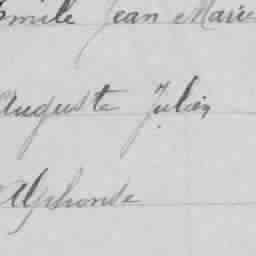 Emile Jean Marie
Auguste Julien
Alphonse